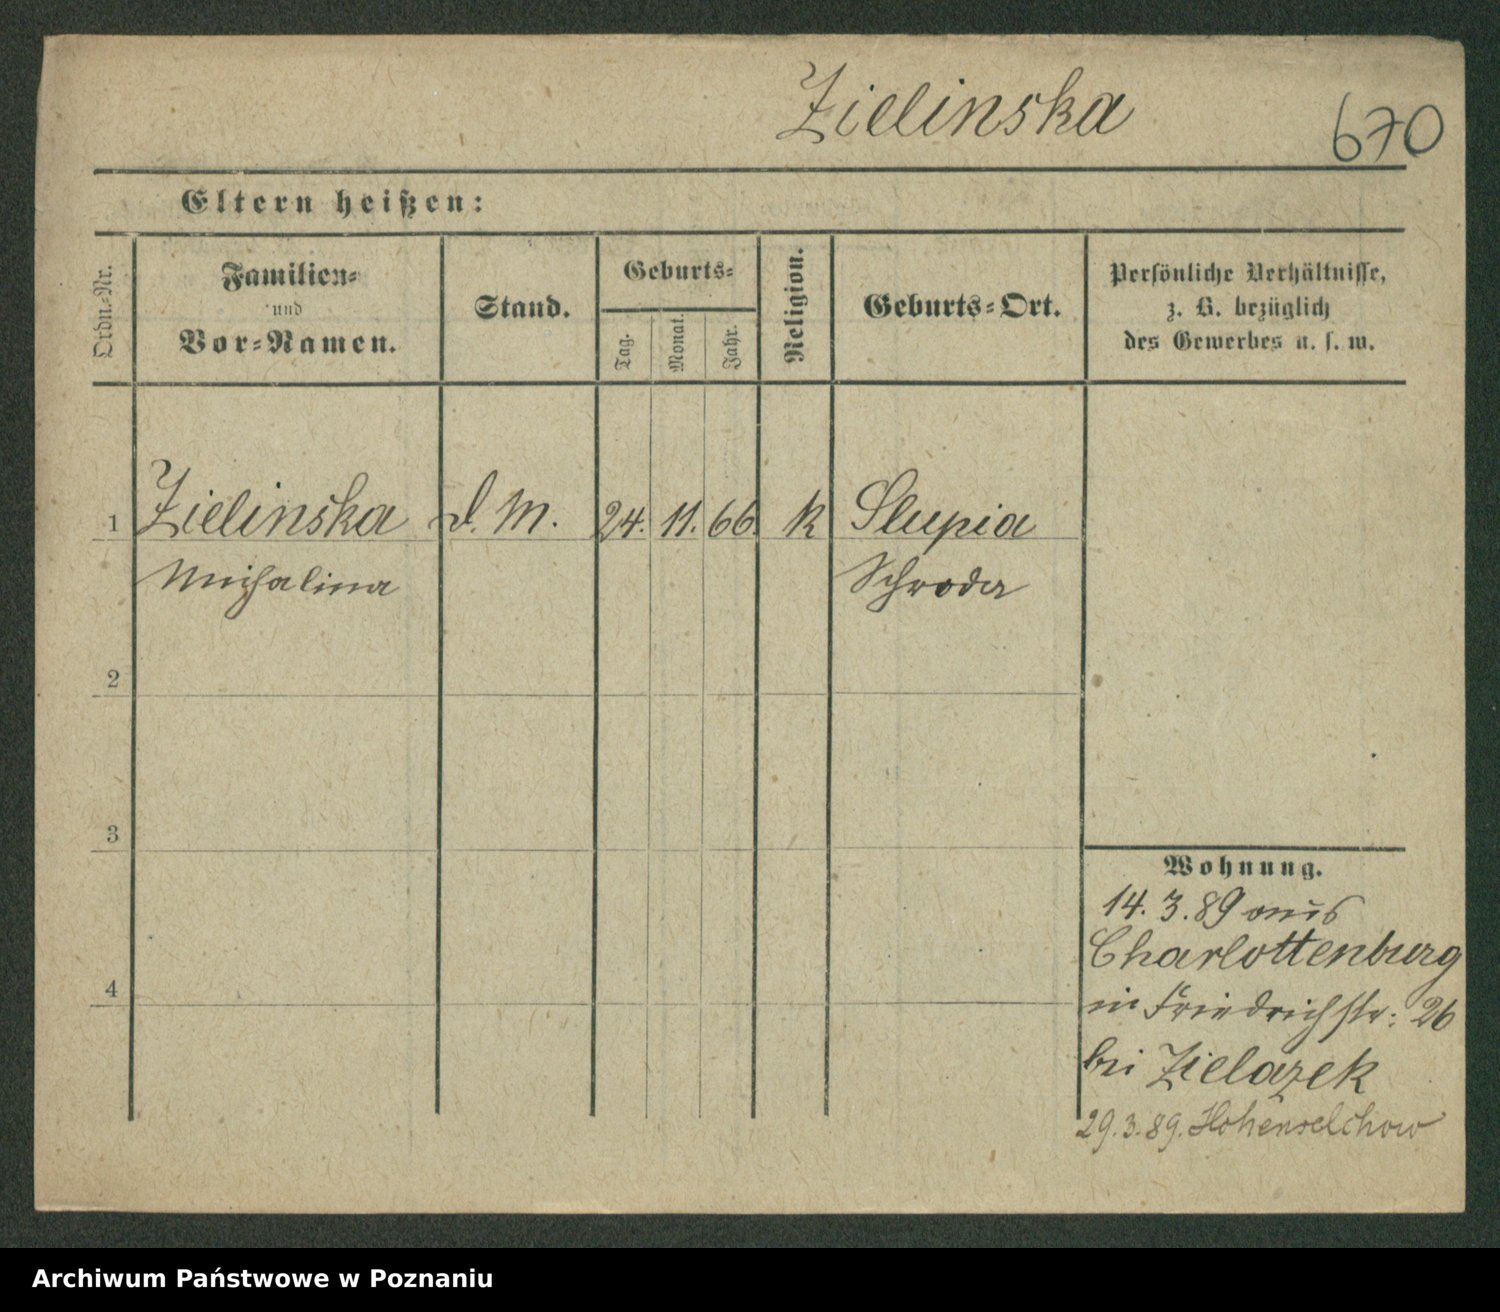 Zielinska
670
Eltern heißen:
Ordn.-Nr.
Familien-
und
Vor-Namen.
Stand.
Geburts-
Tag.
Monat.
Jahr.
Religion.
Geburts-Ort.
Persönliche Verhältnisse,
z. B. bezüglich
des Gewerbes u. s. w.
1 Zielinska d. M. 24. 11. 66. k Slupia
Michalina Schroda
2
3
4
Wohnung.
14. 3. 89 aus
Charlottenburg
in Friedrichstr: 26
bei Zielazek
29. 3. 89. Hohenselchow
Archiwum Państwowe w Poznaniu